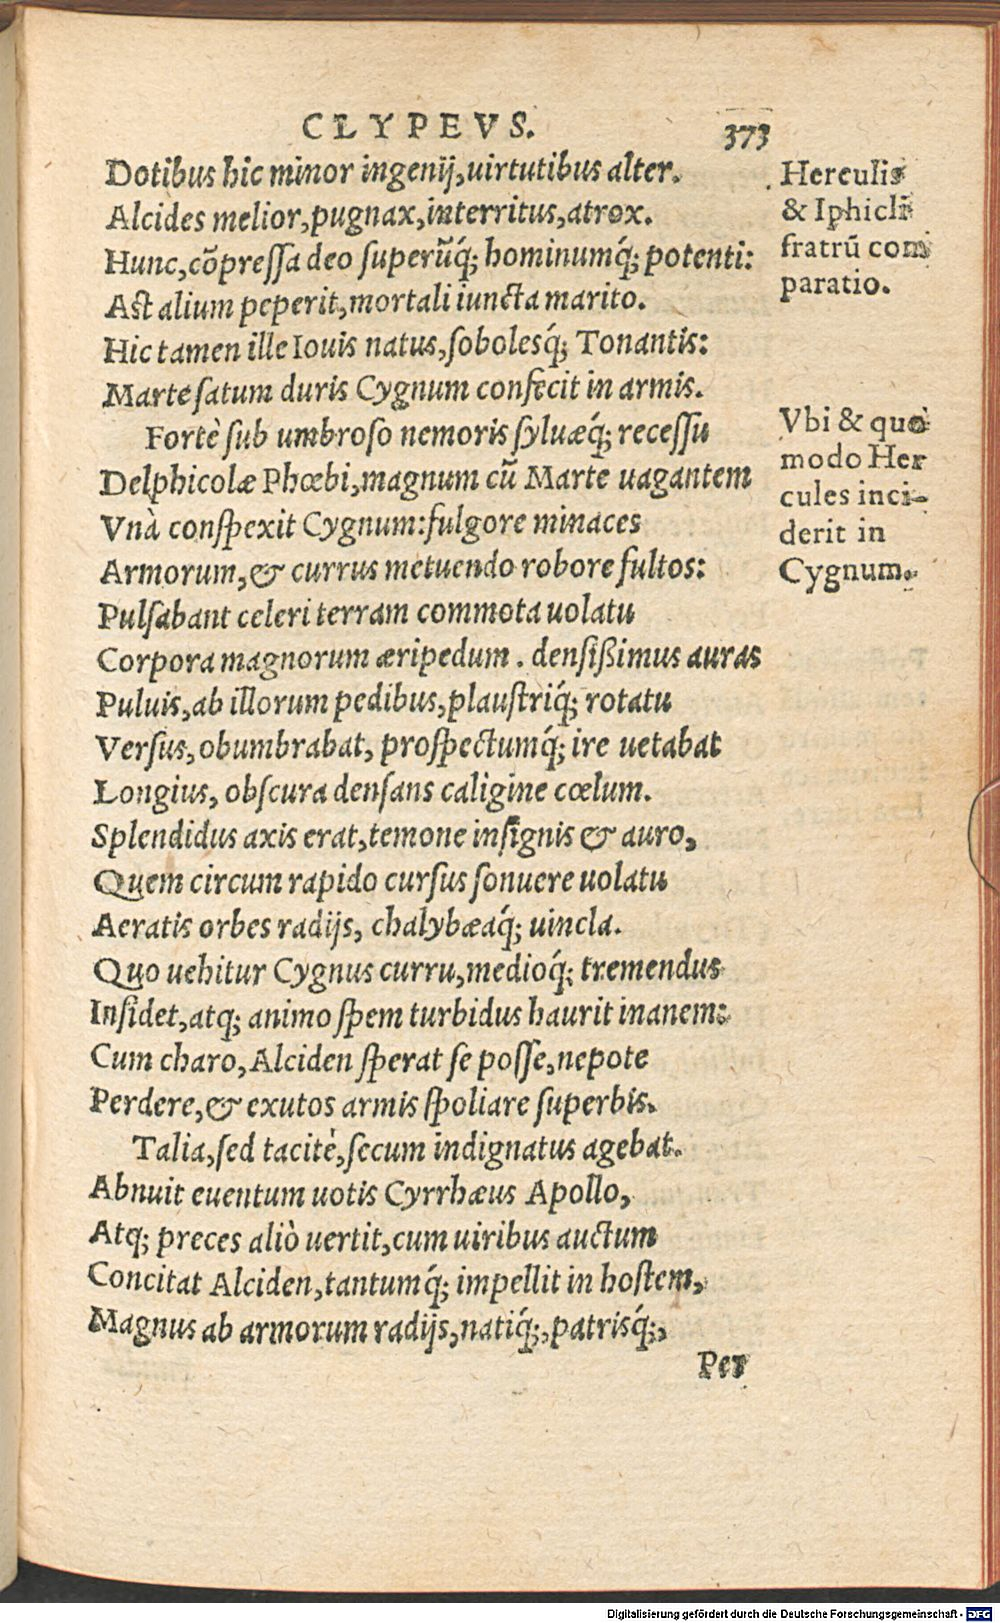 CLYPEVS. 373
Dotibus hic minor ingenij, uirtutibus alter.
Alcides melior, pugnax, interritus, atrox.
Hunc, cõpressa deo superũq́; hominumq́; potenti:
Ast alium peperit, mortali iuncta marito.
Hic tamen ille Iouis natus, sobolesq́; Tonantis:
Marte satum duris Cygnum confecit in armis.
Fortè sub umbroso nemoris syluæq́; recessu
Delphicolæ Phœbi, magnum cũ Marte uagantem
Vnà conspexit Cygnum: fulgore minaces
Armorum, & currus metuendo robore fultos:
Pulsabant celeri terram commota uolatu
Corpora magnorum æripedum. densißimus auras
Puluis, ab illorum pedibus, plaustriq́; rotatu
Versus, obumbrabat, prospectumq́; ire uetabat
Longius, obscura densans caligine cœlum.
Splendidus axis erat, temone insignis & auro,
Quem circum rapido cursus sonuere uolatu
Aeratis orbes radijs, chalybæaq́; uincla.
Quo uehitur Cygnus curru, medioq́; tremendus
Insidet, atq; animo spem turbidus haurit inanem:
Cum charo, Alciden sperat se posse, nepote
Perdere, & exutos armis spoliare superbis.
Talia, sed tacitè, secum indignatus agebat.
Abnuit euentum uotis Cyrrhæus Apollo,
Atq; preces aliò uertit, cum uiribus auctum
Concitat Alciden, tantumq́; impellit in hostem,
Magnus ab armorum radijs, natiq́;, patrisq́;,
Per
Herculis
& Iphicli
fratrũ com
paratio.
Vbi & quo
modo Her
cules inci-
derit in
Cygnum.
Digitalisierung gefördert durch die Deutsche Forschungsgemeinschaft - DFG